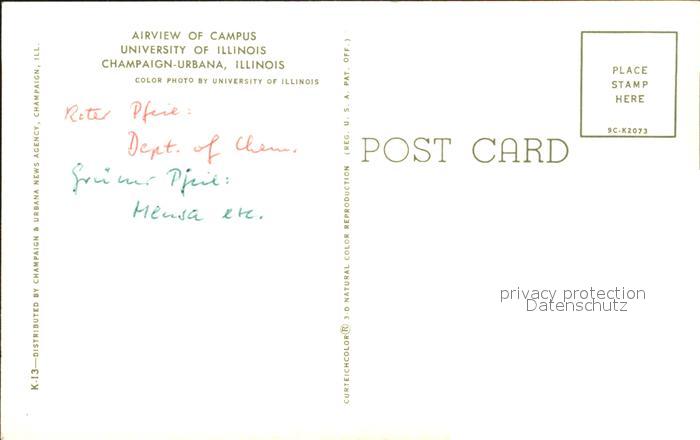 AIRVIEW OF CAMPUS
UNIVERSITY OF ILLINOIS
CHAMPAIGN-URBANA, ILLINOIS
COLOR PHOTO BY UNIVERSITY OF ILLINOIS
Roter Pfeil:
Dept. of Chem.
Grüner Pfeil:
Mensa etc.
K-13—DISTRIBUTED BY CHAMPAIGN & URBANA NEWS AGENCY, CHAMPAIGN, ILL.
CURTEICHCOLOR® 3-D NATURAL COLOR REPRODUCTION (REG. U. S. A. PAT. OFF.)
POST CARD
PLACE
STAMP
HERE
9C-K2073
privacy protection
Datenschutz